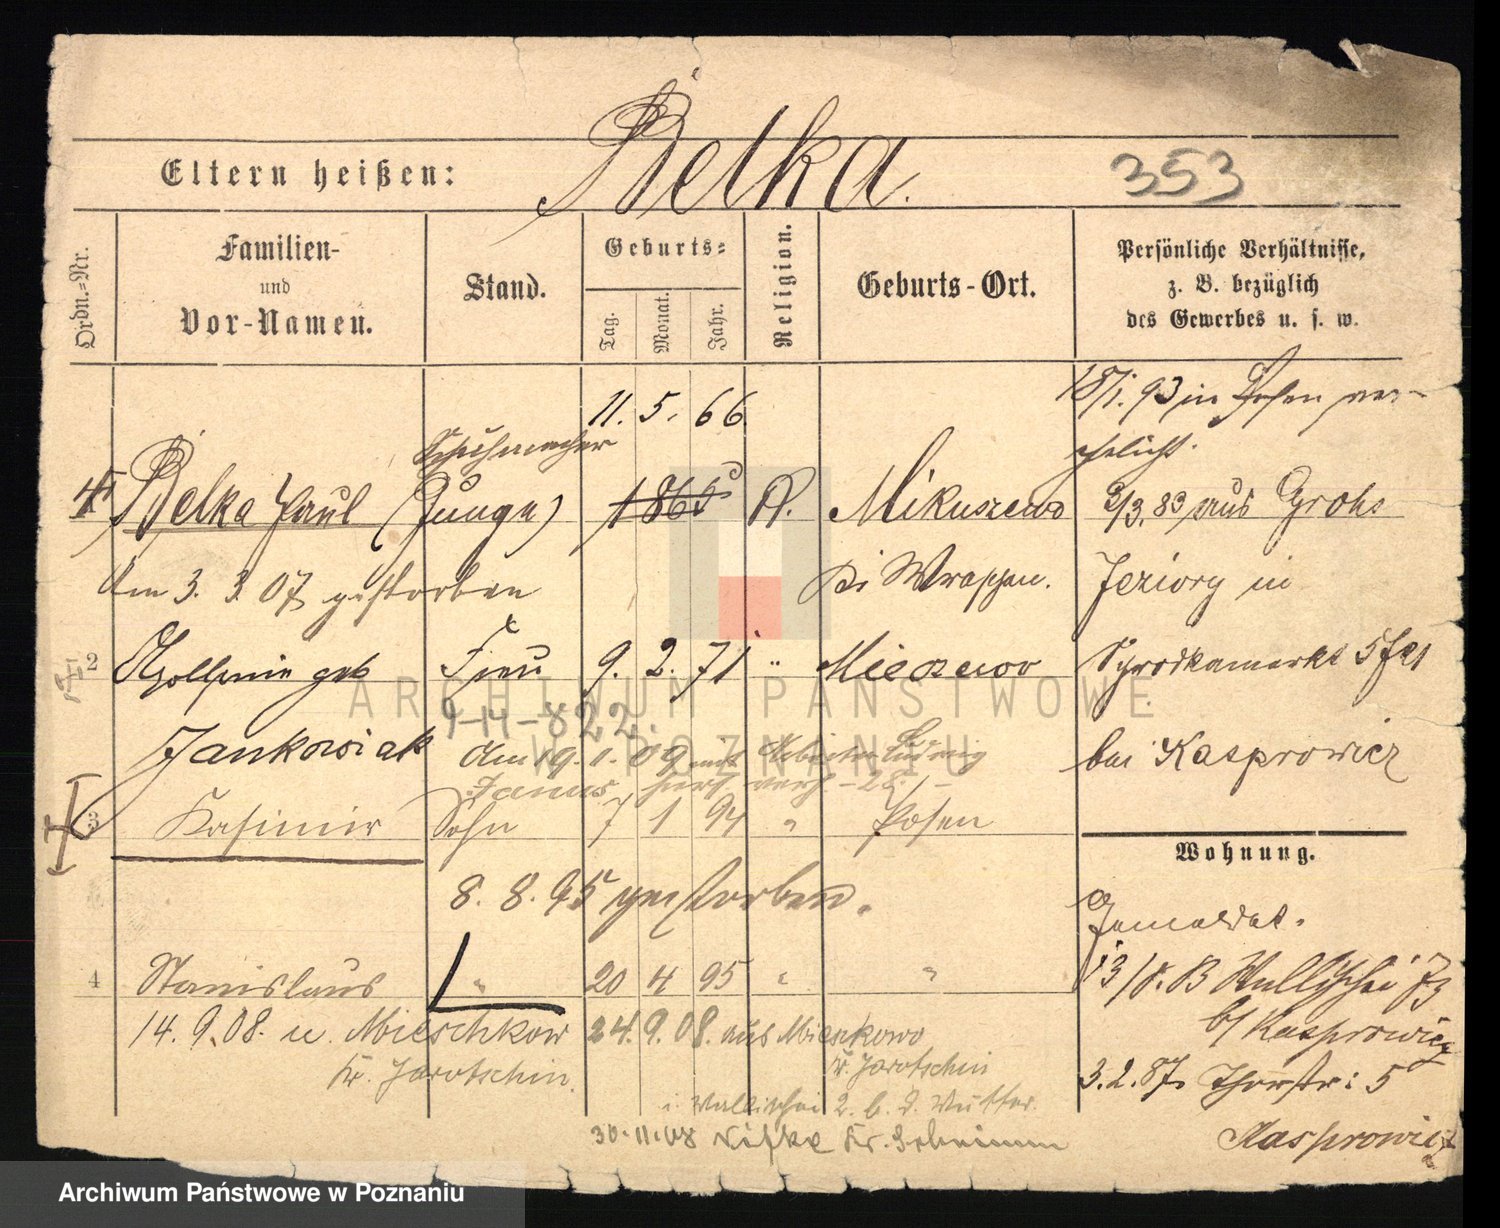 Belka.
Eltern heißen:
353
Ordn.=Nr.
Familien-
und
Vor-Namen.
Stand.
Geburts=
Tag.
Monat.
Jahr.
Religion.
Geburts-Ort.
Persönliche Verhältnisse,
z. B. bezüglich
des Gewerbes u. s. w.
11. 5. 66.
18/1. 93 in Posen ver-
ehelicht.
Schuhmacher
Belka Paul (Junge) Mikuszewo 3/3. 83 aus Groß
am 3. 3. 07 gestorben
bei Jeziory in
2 geb Frau 9. 2. 71 " 5
Jankowiak
9-14-822.
bei Kasprowicz
Am 19. 1. 09 mit Arbeiter Ludwig
3 Kasimir Sohn 7 1 94 " Posen
Wohnung.
8. 8. 95 gestorben.
4 Stanislaus " 20 4 95 " "
Wallischei
b/ Kasprowicz
14. 9. 08. n. Mieschkow 24. 9. 08. aus Mieszkowo
Kr. Jarotschin. Kr. Jarotschin
3. 2. 87. Thorstr: 5
i. Wallischei 2. b. d. Mutter.
30.11.08 Kr. Schrimm
Kasprowicz
ARCHIWUM PAŃSTWOWE
W POZNANIU
Archiwum Państwowe w Poznaniu